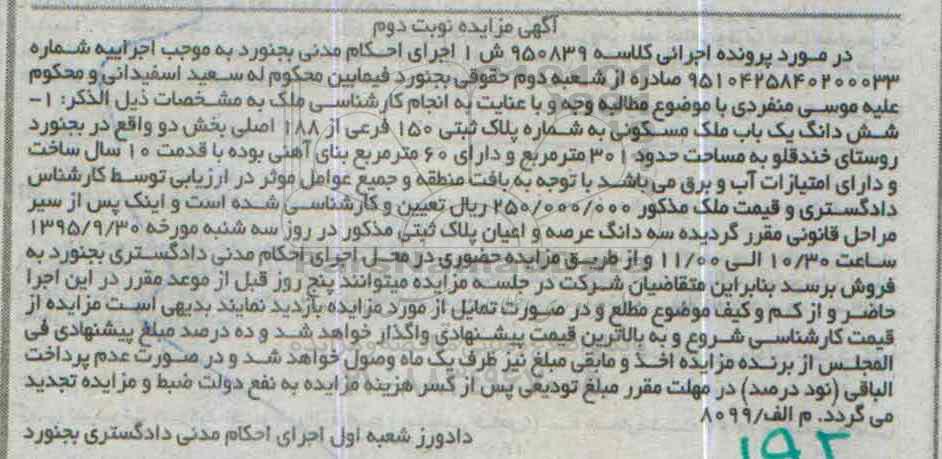 آگهی مزایده نوبت دوم
در مورد پرونده اجرائی کلاسه ۹۵۰۸۳۹ ش ۱ اجرای احکام مدنی بجنورد به موجب اجراییه شماره
۹۵۱۰۴۲۵۸۴۰۲۰۰۰۳۳ صادره از شعبه دوم حقوقی بجنورد فیمابین محکوم له سعید اسفیدانی و محکوم
علیه موسی منفردی با موضوع مطالبه وجه و با عنایت به انجام کارشناسی ملک به مشخصات ذیل الذکر: ۱-
شش دانگ یک باب ملک مسکونی به شماره پلاک ثبتی ۱۵۰ فرعی از ۱۸۸ اصلی بخش دو واقع در بجنورد
روستای خندقلو به مساحت حدود ۳۰۱ مترمربع و دارای ۶۰ مترمربع بنای آهنی بوده با قدمت ۱۰ سال ساخت
و دارای امتیازات آب و برق می باشد با توجه به بافت منطقه و جمیع عوامل موثر در ارزیابی توسط کارشناس
دادگستری و قیمت ملک مذکور ۲۵۰/۰۰۰/۰۰۰ ریال تعیین و کارشناسی شده است و اینک پس از سیر
مراحل قانونی مقرر گردیده سه دانگ عرصه و اعیان پلاک ثبتی مذکور در روز سه شنبه مورخه ۱۳۹۵/۹/۳۰
ساعت ۱۰/۳۰ الی ۱۱/۰۰ و از طریق مزایده حضوری در محل اجرای احکام مدنی دادگستری بجنورد به
فروش برسد بنابراین متقاضیان شرکت در جلسه مزایده میتوانند پنج روز قبل از موعد مقرر در این اجرا
حاضر و از کم و کیف موضوع مطلع و در صورت تمایل از مورد مزایده بازدید نمایند بدیهی است مزایده از
قیمت کارشناسی شروع و به بالاترین قیمت پیشنهادی واگذار خواهد شد و ده درصد مبلغ پیشنهادی فی
المجلس از برنده مزایده اخذ و مابقی مبلغ نیز ظرف یک ماه وصول خواهد شد و در صورت عدم پرداخت
الباقی (نود درصد) در مهلت مقرر مبلغ تودیعی پس از کسر هزینه مزایده به نفع دولت ضبط و مزایده تجدید
می گردد. م الف/۸۰۹۹
دادورز شعبه اول اجرای احکام مدنی دادگستری بجنورد
۱۹۲